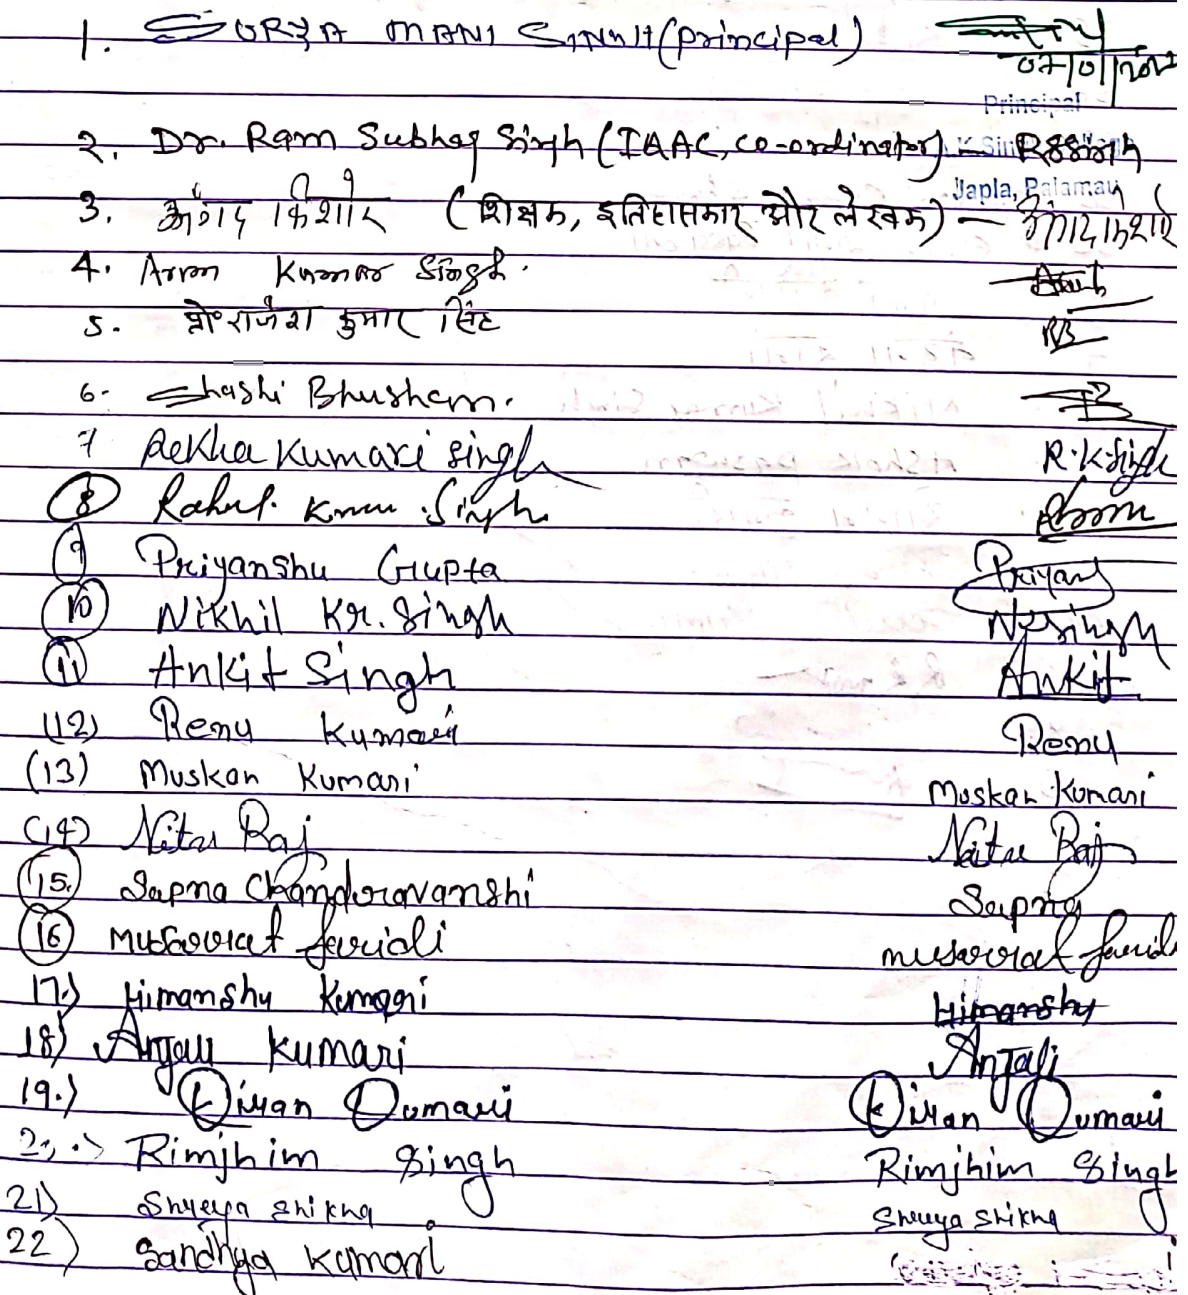 1. SURYA MANI SINGH (principal)
07/01/202
Principal
2. Dr. Ram Subhag Singh (IAAC, co-ordinator) - RSSingh
Japla, Palamau
3. अंगद किशोर (शिक्षक, इतिहासकार और लेखक) - अंगद किशोर
4. Arun Kumar Singh.
5. प्रो० राजेश कुमार सिंह RB
6- Shashi Bhushan.
7 Rekha Kumari Singh R.K Singh
8 Rahul Kumar Singh
9 Priyanshu Gupta Priyans
10 Nikhil Kr. Singh NKSingh
11 Ankit Singh Ankit
(12) Renu Kumari Renu
(13) Muskan Kumari Muskan Kumari
(14) Nitu Raj Neitu Raj
15. Sapna Chandoravanshi Sapna
16 Musarrat faridi musarrat farid
17.) Himanshu Kumari Himanshu
18) Anjali Kumari Anjali
19.) Kiran Kumari Kiran Kumari
20.) Rimjhim Singh Rimjhim Singh
21) Shreya Shikha Shreya Shikha
22) Sandhya Kumari